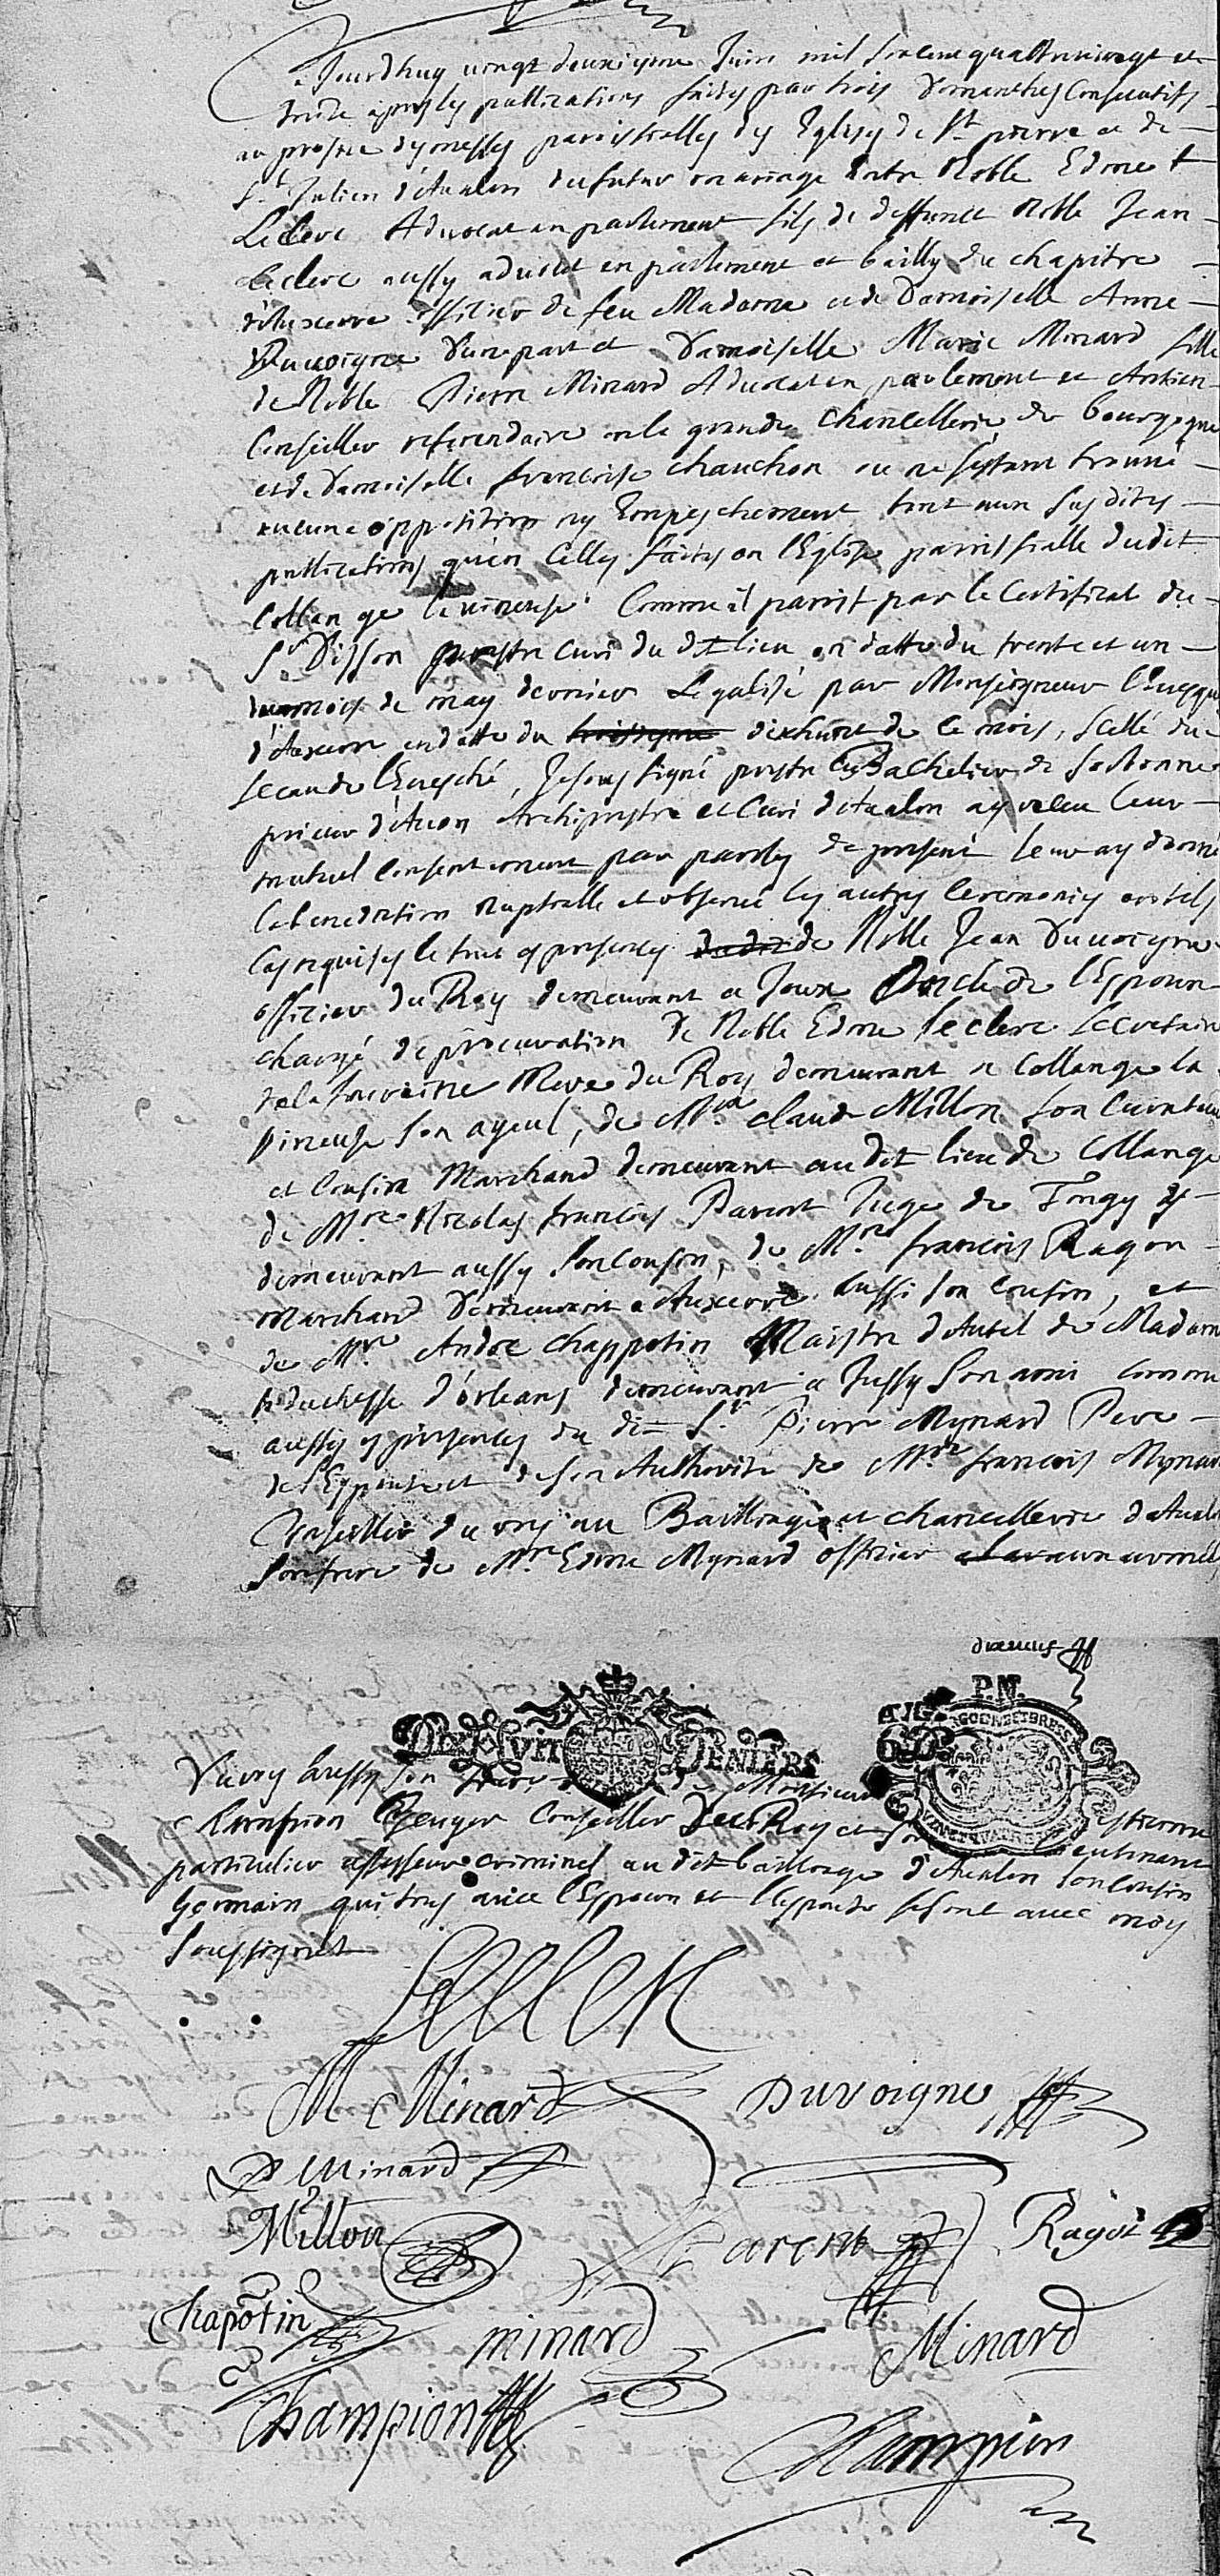 Jourdhuy vingt deuxiesme Juin mil six cent quattrevingt et
treize apres les publications faites par trois Dimanches Consecutifs
au prosne des messes paroissialles des Eglises de St pierre et de
St Julien d'Aualon du futur mariage Entre Noble Edme
Leclerc Aduocat en parlement fils de deffunct Noble Jean
Leclerc aussy aduocat en parlement et bailly du chapitre
d'Auxerre officier de feu Madame et de Damoiselle Anne
Duuoigne d'une part et Damoiselle Marie Minard fille
de Noble Pierre Minard Aduocat en parlement et Antien
Conseiller referendaire en la grande Chancellerie de bourgogne
et de Damoiselle francoise chauchon ou ne sestant trouué
aucune opposition ny Empeschement tant aux susdites
publications qu'en Celles faites en l'Eglise parroissialle dudit
Collange la vineuse Comme il paroist par le Certificat du
Sr Disson prestre curé du dit lieu en datte du trente et un
du mois de may dernier Legalisé par Monseigneur l'Euesque
d'Auxerre en datte du dixhuict de ce mois, scellé du
sceau de l'Euesché, Je soussigné prestre Bachelier de Sorbonne
prieur d'Auon Archiprestre et Curé d'Aualon ay receu leur
mutuel Consentement par parolles de present leur ay donné
la benediction nuptialle et obserué les autres Ceremonies
Cas requises le tout es presences de Noble Jean Duuoigne
officier du Roy demeurant a Joux Oncle de l'Espoux
chargé de procuration de Noble Edme leclerc secretaire
de la feu reine Mere du Roy demeurant a Collange la
vineuse son ayeul, de Mre claude Millon son curateur
et Cousin Marchand demeurant au dit lieu de Collange
de Mre Nicolas francois Parent Juge de Tingy
demeurant aussy son cousin, de Mre francois Ragon
marchand Demeurant a Auxerre aussi son cousin, et
de Mre Andre chappotin Maistre d'hutel de Madame
la duchesse d'orleans demeurant a Jussy son ami comme
aussy es presences du dit Sr Pierre Mynard Pere
de l'Espouse et de son Authorité de Mre francois Mynard
Conseiller du roy au Bailliage et chancellerie d'Aualon
son frere de Mre Edme Mynard officier
dixneuf
DIX HUIT DENIERS
P.M.
Du roy aussy son frere Monsieur
Champion Conseiller Du Roy et son Lieutenant
particulier assesseur criminel au dit bailliage d'Aualon son Cousin
Germain qui tous auec l'Espoux et l'espouse se sont auec moy
soussignez
Leclerc
M Minard
Duvoigne
P Minard
Millon
Parent
Ragot
Chapotin
minard
Minard
Champion
Champion